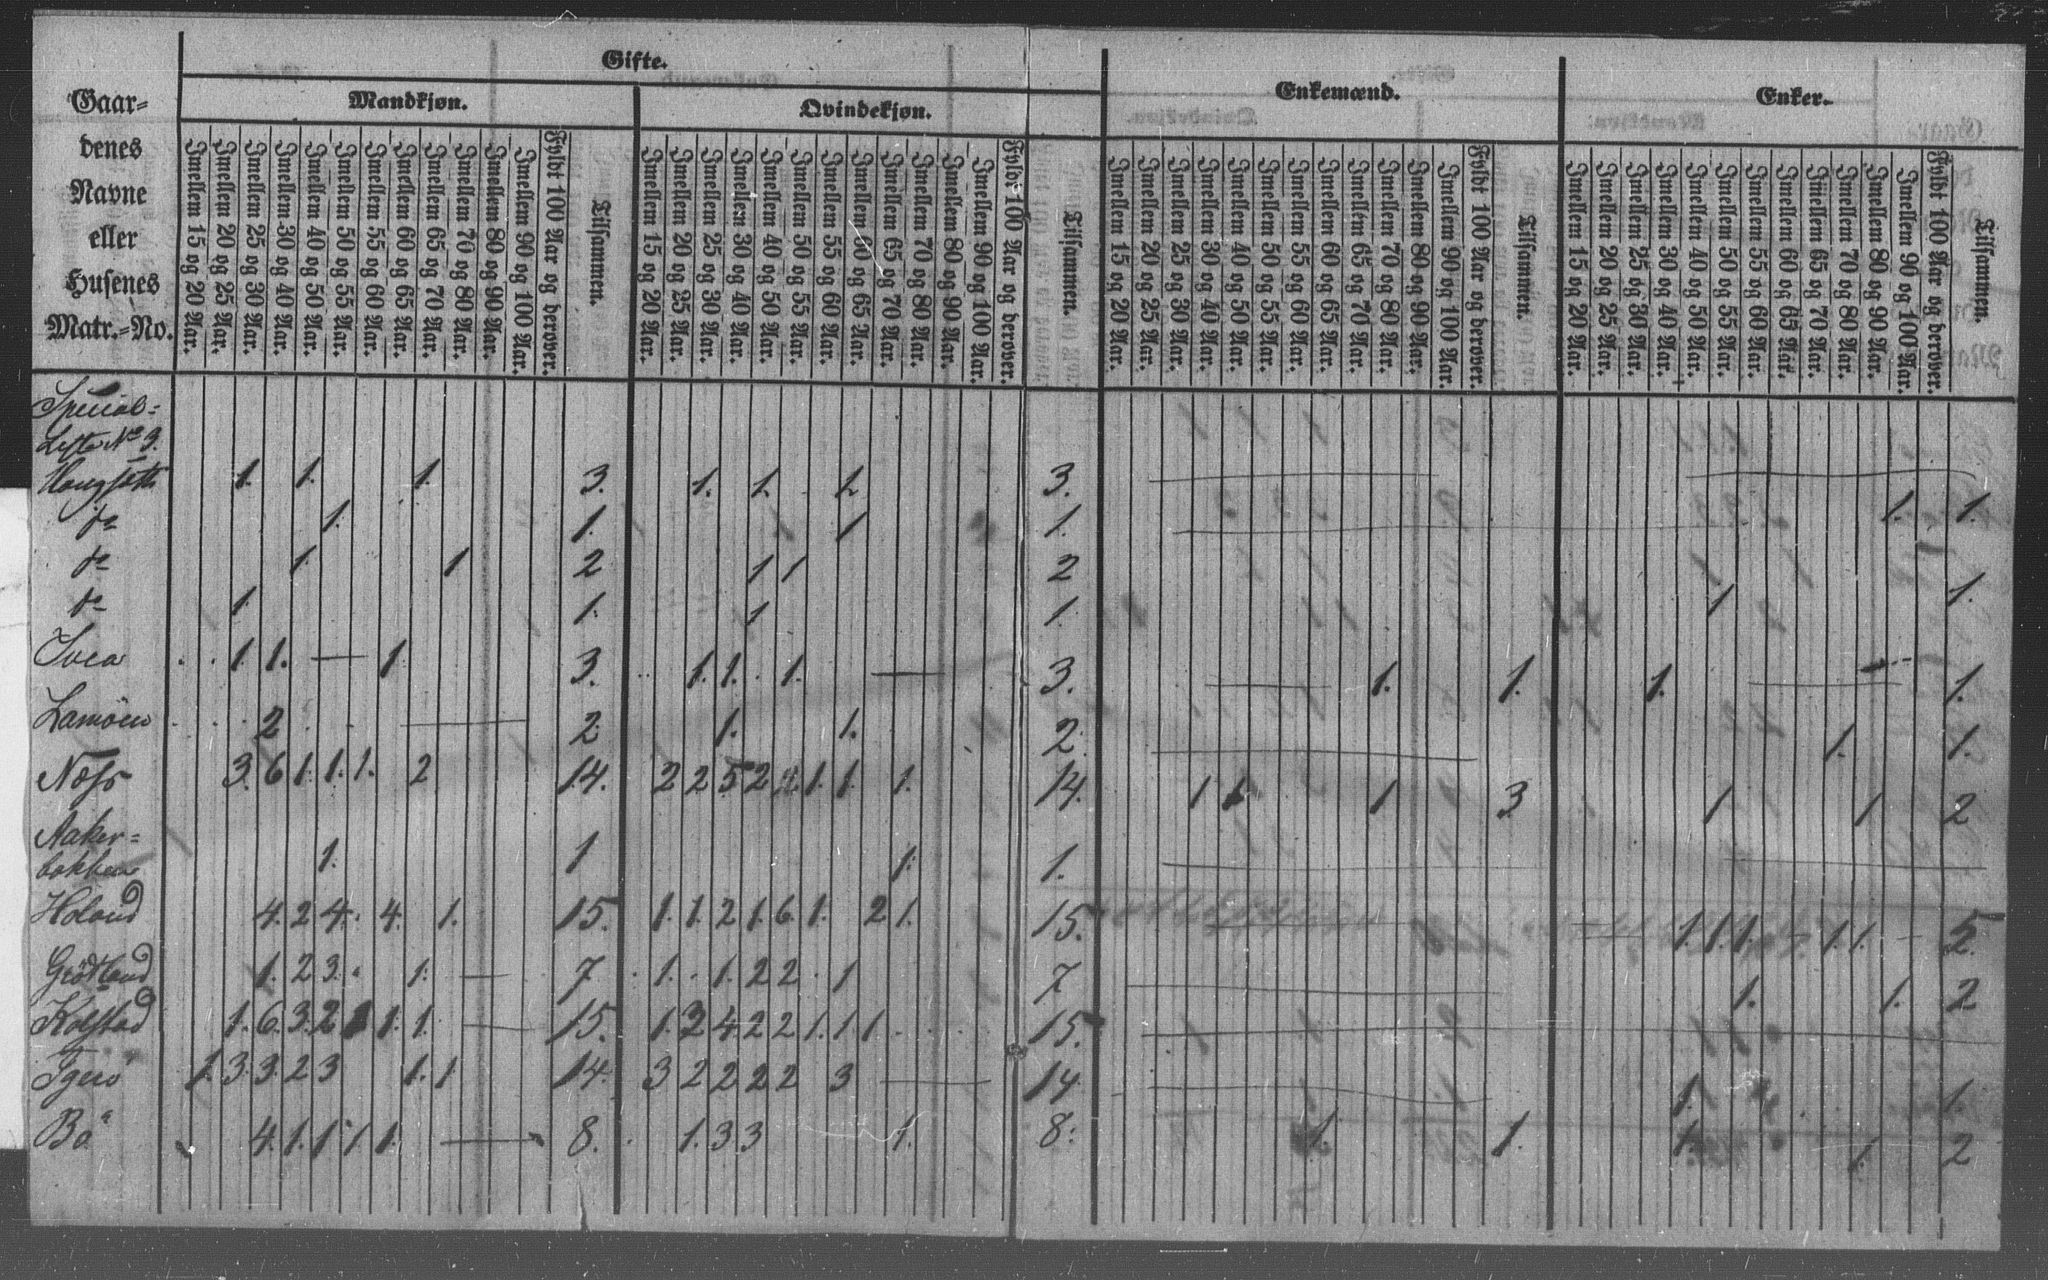 Gifte.
Enkemænd.
Enker.
Mandkjøn.
Qvindekjøn.
Gaar-
denes
Navne
eller
Husenes
Matr.-No.
Imellem 15 og 20 Aar.
Imellem 20 og 25 Aar.
Imellem 25 og 30 Aar.
Imellem 30 og 40 Aar.
Imellem 40 og 50 Aar.
Imellem 50 og 55 Aar.
Imellem 55 og 60 Aar.
Imellem 60 og 65 Aar.
Imellem 65 og 70 Aar.
Imellem 70 og 80 Aar.
Imellem 80 og 90 Aar.
Imellem 90 og 100 Aar.
Fyldt 100 Aar og derover.
Tilsammen.
Imellem 15 og 20 Aar.
Imellem 20 og 25 Aar.
Imellem 25 og 30 Aar.
Imellem 30 og 40 Aar.
Imellem 40 og 50 Aar.
Imellem 50 og 55 Aar.
Imellem 55 og 60 Aar.
Imellem 60 og 65 Aar.
Imellem 65 og 70 Aar.
Imellem 70 og 80 Aar.
Imellem 80 og 90 Aar.
Imellem 90 og 100 Aar.
Fyldt 100 Aar og derover.
Tilsammen.
Imellem 15 og 20 Aar.
Imellem 20 og 25 Aar.
Imellem 25 og 30 Aar.
Imellem 30 og 40 Aar.
Imellem 40 og 50 Aar.
Imellem 50 og 55 Aar.
Imellem 55 og 60 Aar.
Imellem 60 og 65 Aar.
Imellem 65 og 70 Aar.
Imellem 70 og 80 Aar.
Imellem 80 og 90 Aar.
Imellem 90 og 100 Aar.
Fyldt 100 Aar og derover.
Tilsammen.
Imellem 15 og 20 Aar.
Imellem 20 og 25 Aar.
Imellem 25 og 30 Aar.
Imellem 30 og 40 Aar.
Imellem 40 og 50 Aar.
Imellem 50 og 55 Aar.
Imellem 55 og 60 Aar.
Imellem 60 og 65 Aar.
Imellem 65 og 70 Aar.
Imellem 70 og 80 Aar.
Imellem 80 og 90 Aar.
Imellem 90 og 100 Aar.
Fyldt 100 Aar og derover.
Tilsammen.
Special-
Liste No 3.
Haugseth 1. 1. 1. 3. 1. 1. 1. 3.
do 1. 1. 1. 1. 1. 1.
do 1. 1 2 1 1 2
do 1. 1. 1 1. 1 1.
1. 1. 1. 3. 1. 1. 1. 3. 1. 1. 1. 1.
Lamöen 2 2 1. 1. 2 1. 1.
Næss 3. 6 1. 1. 1. 2 14. 2 2 5 2 1. 1. 1. 14. 1 1 1 3 1 1 2
Aaker-
bakken 1. 1 1. 1.
Holand 4. 2 4. 4. 1. 15. 1. 1. 2 1. 6 1. 2 1. 15. 1. 1. 1. 1. 1. 5
Grötland 1. 2 3. 1. 7 1. 1. 2 2 1 7 1. 1. 2
Kolstad 1. 6. 3. 2 1 1. 1. 15. 1. 2 4. 2 2 1. 1. 1 15.
1. 3 3. 2 3 1. 1 14. 3 2 2 2 2 3 14. 1. 1.
Bö 4. 1. 1 1 1. 8. 1. 3 3 1. 8. 1. 1. 1. 1. 2